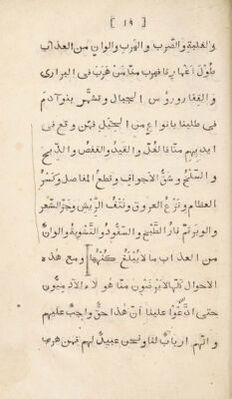 [ ١٩ ]
والغلبة والضرب والهرب والوان من العذاب
بطول اعمارنا فهرب منا من هرب في البراري
والقفار ورؤس الجبال وتشمر بنو آدم
في طلبنا بانواع من الحيل فمن وقع في
ايديهم منا فالغل والقيد والقفص والذبح
والسلخ وشق الاجواف وقطع المفاصل وكسر
العظام ونزع العروق ونتف الريش وجز الشعر
والوبر ثم نار الطبخ والسفود والتشوية والوان
من العذاب ما لا يبلغ كنهها ومع هذه
الاحوال كلها لا يرضون منا هولاء الآدميون
حتى ادعوا علينا ان هذا حق واجب عليهم
وانهم ارباب لنا ونحن عبيد لهم فمن هرب